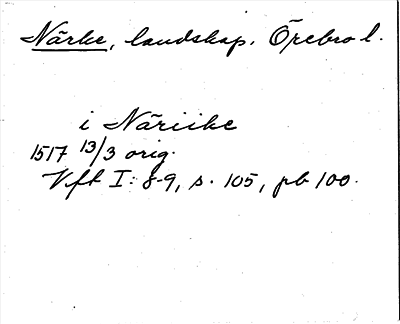 Närke, landskap. Örebro l.
i Näriike
1517 13/3 orig.
Vft I: 8-9, s. 105, pb 100.